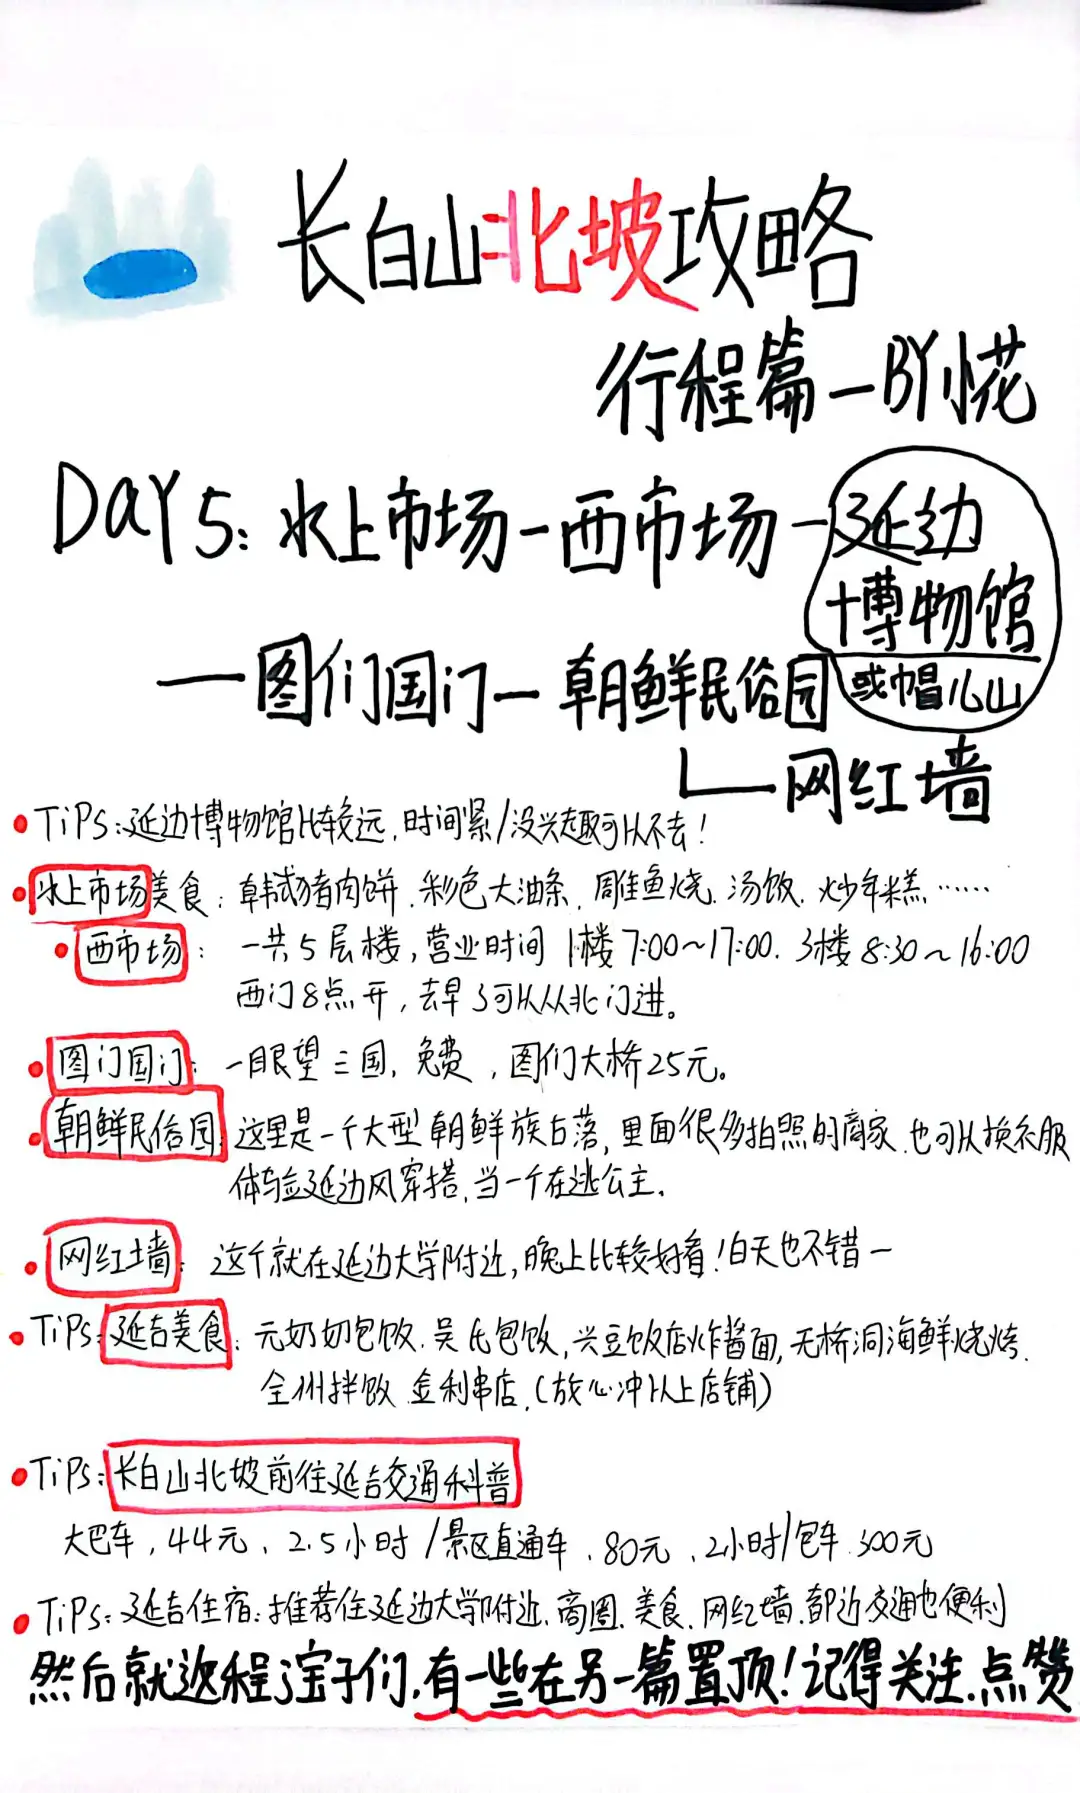 长白山北坡攻略
行程篇—BY小花
DaY5:水上市场—西市场—延边
博物馆
或帽儿山
—图们国门—朝鲜民俗园
网红墙
TiPS:延边博物馆比较远,时间紧/没兴趣可以不去!
水上市场美食:韩式猪肉饼、彩色大油条、雕鱼烧、汤饭、炒年糕……
西市场:一共5层楼,营业时间 1楼7:00~17:00、3楼8:30~16:00
西门8点开,去早了可以从北门进。
图门国门:一眼望三国,免费,图们大桥25元。
朝鲜民俗园:这里是一个大型朝鲜族古落,里面很多拍照的商家、也可以换衣服
体验延边风穿搭,当一个在逃公主。
网红墙:这个就在延边大学附近,晚上比较好看!白天也不错一
TiPS:延吉美食:元奶奶包饭、吴氏包饭,兴豆饭店炸酱面,无桥洞海鲜烧烤、
全州拌饭、金利串店,(放心冲以上店铺)
TiPS:长白山北坡前往延吉交通科普
大巴车,44元、2.5小时/景区直通车、80元、2小时/包车300元
TiPS:延吉住宿:推荐住延边大学附近、商圈、美食、网红墙、都近交通也便利
然后就返程了宝子们,有一些在另一篇置顶!记得关注、点赞